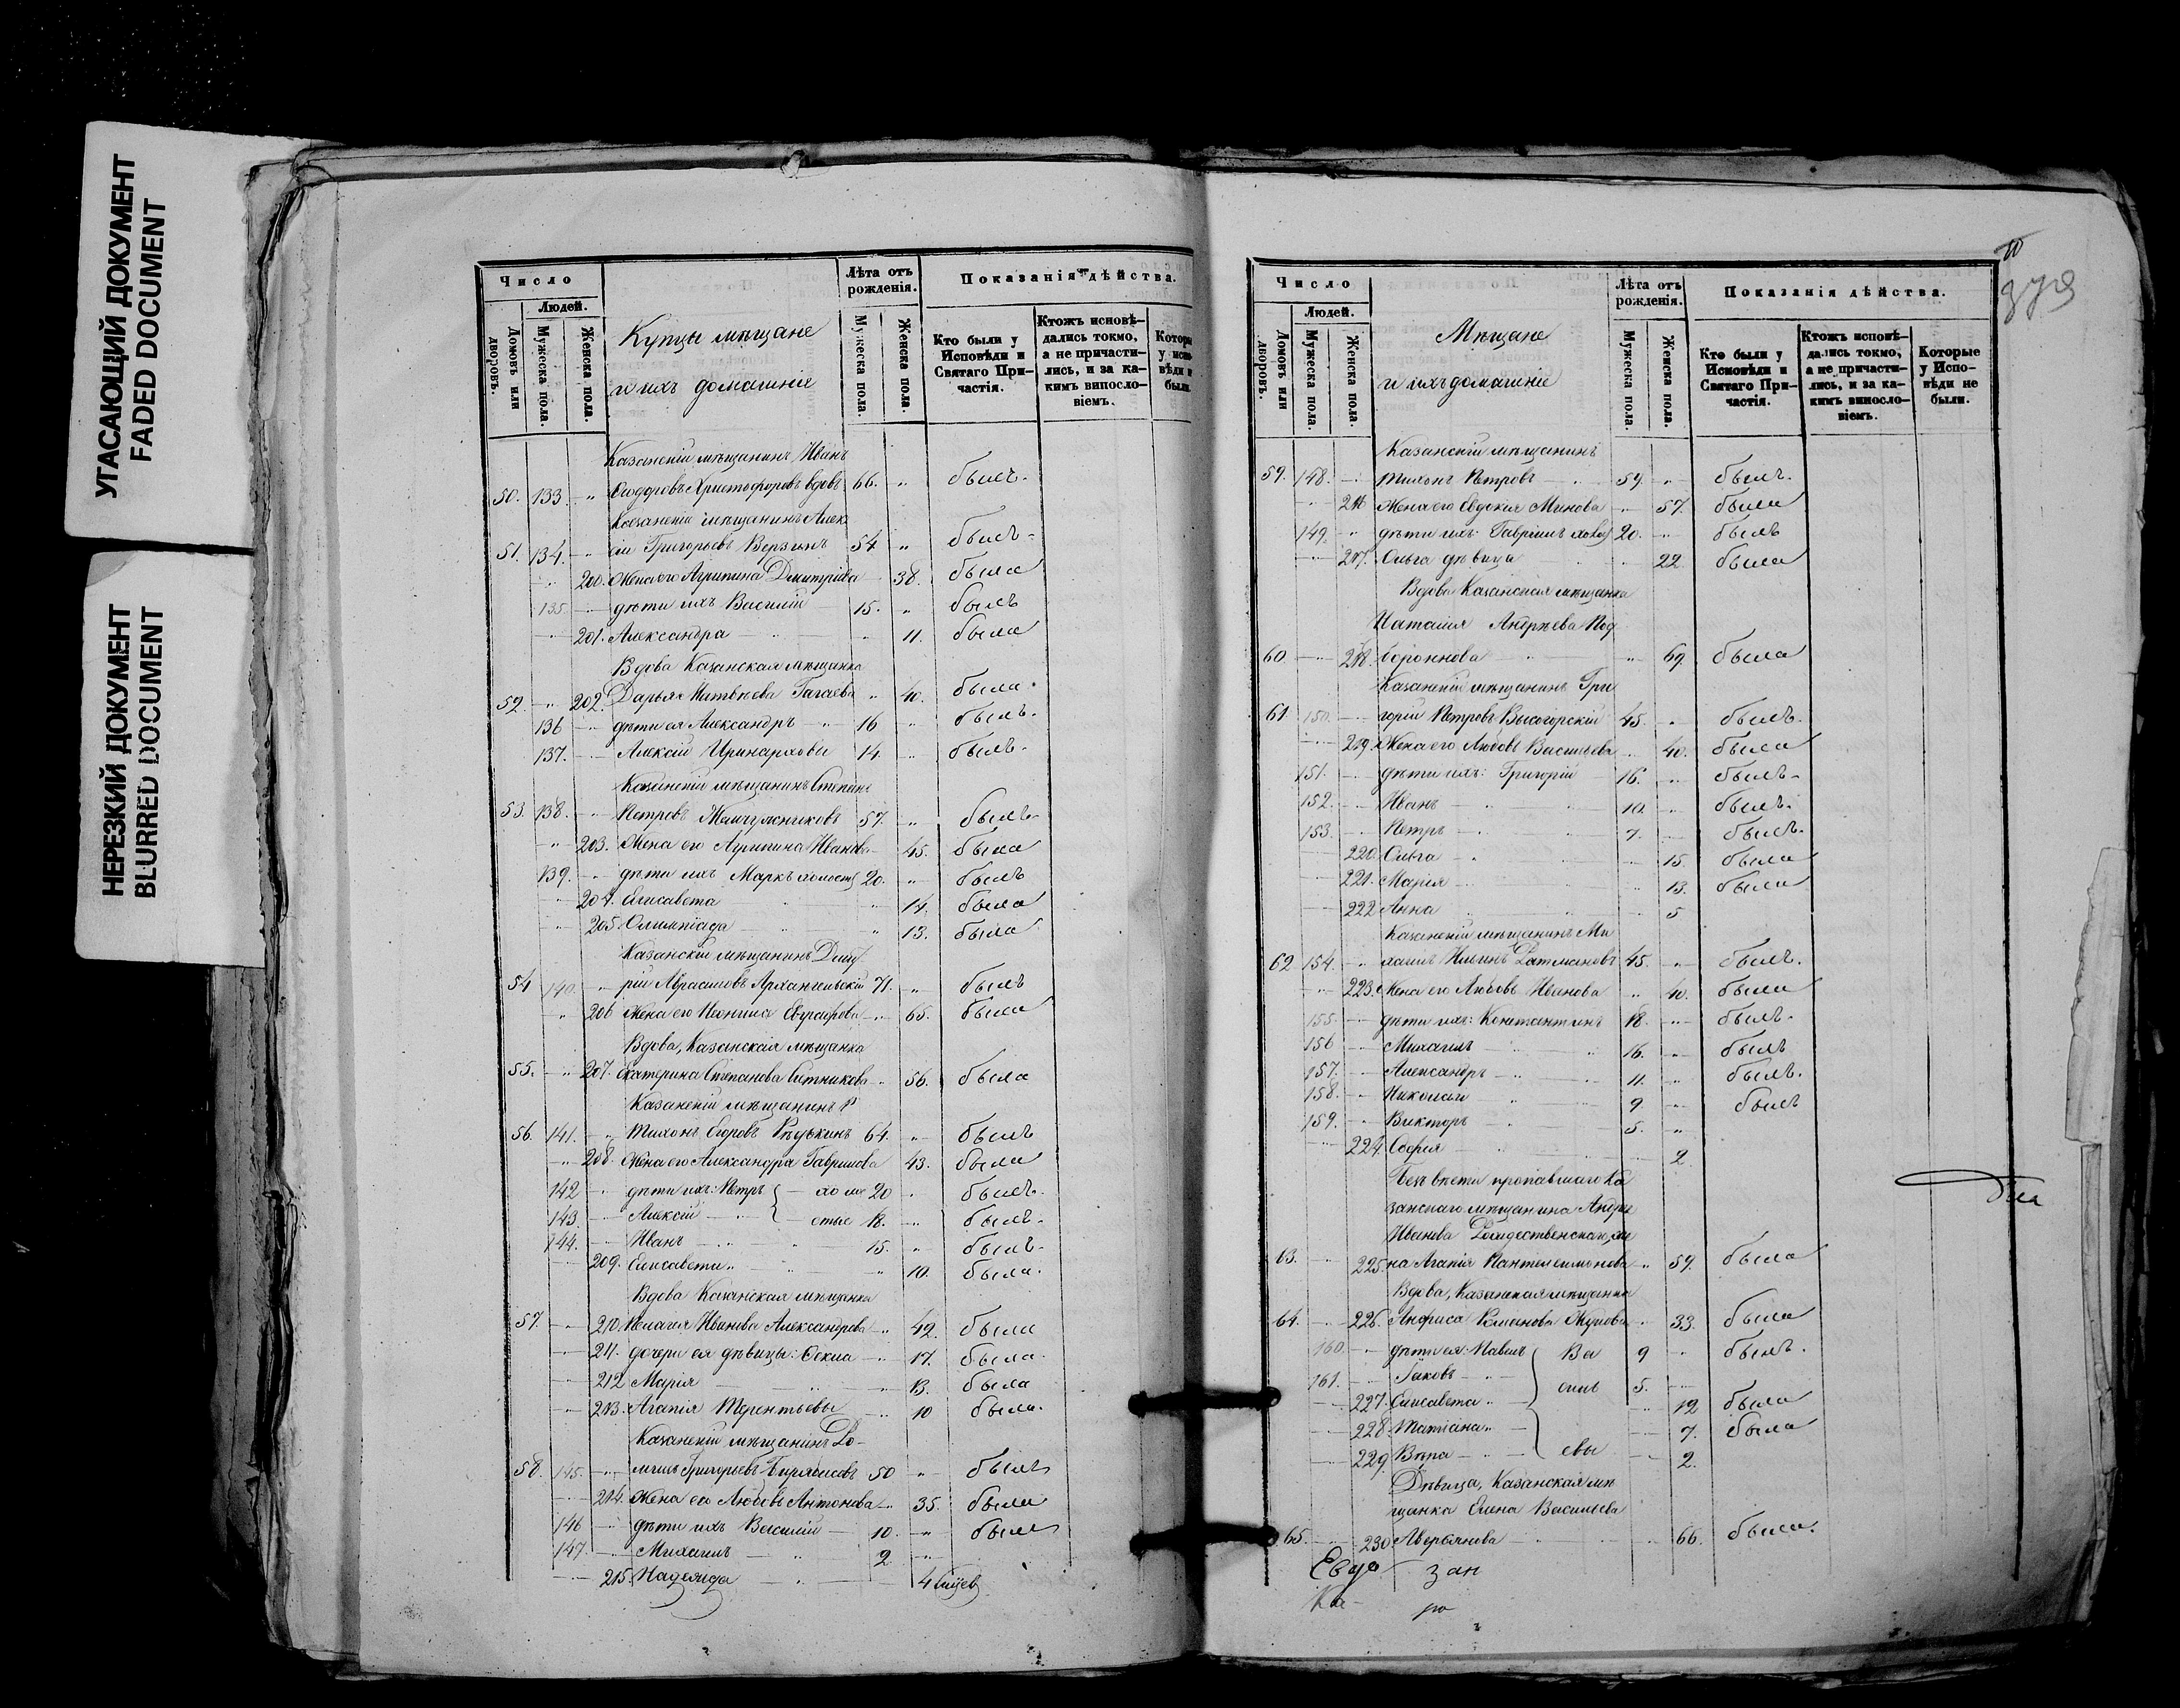 УГАСАЮЩИЙ ДОКУМЕНТ
FADED DOCUMENT
НЕРЕЗКИЙ ДОКУМЕНТ
BLURRED DOCUMENT
Число
Людей.
Домовъ или дворовъ.
Мужеска пола.
Женска пола.
Купцы мѣщане
и ихъ домашніе
Лѣта отъ рожденія.
Мужеска пола.
Женска пола.
Показанія дѣйства.
Кто были у Исповѣди и Святаго Причастія.
Ктожъ исповѣдались токмо, а не причастились, и за какимъ випословіемъ.
Казанскій мѣщанинъ Иванъ
50. 133. " Ѳеодоровъ Христофоровъ вдовъ 66. " былъ.
Казанскій мѣщанинъ Алек
51. 134. " сій Григорьевъ Верзинъ 54 " былъ
200. Жена его Агрипина Дмитріева 38. была
135. дѣти ихъ Василій 15. " былъ
201. Александра 11. была
Вдова Казанская мѣщанка
52. 202. Дарья Матвѣева Гагаева " 40. была.
136 дѣти ея Александръ 16 " былъ.
137. Алексій Иринарховы 14. былъ.
Казанскій мѣщанинъ Степанъ
53. 138. Петровъ Жемчужниковъ 57. " былъ
203. Жена его Агрипина Иванова 45. была
139. дѣти ихъ Маркъ холост 20. " былъ
204. Елисавета 14. была
205. Олимпіада " 13. была
Казанскій мѣщанинъ Дмит
54 140. рій Абрамовъ Архангельскій 71. " былъ
206 Жена его Евграфова 65. была
Вдова, Казанская мѣщанка
55. 207. Екатерина Степанова Ситникова " 56. была
Казанскій мѣщанинъ
56. 141. Тихонъ Егоровъ Рѣдькинъ 64. " былъ
208. Жена его Александра Гаврилова 43. была
142 дѣти ихъ: Петръ холо 20 былъ.
143. Алексій стые 18. былъ.
144. Иванъ 15. " былъ.
209. Елисавета 10. была.
Вдова Казанская мѣщанка
57. 210 Пелагія Иванова Александрова 42. была
211. дочери ея дѣвицы: Ѳекла 17. была.
212 Марія 13. была
213. Агапія Терентьевы 10 была.
Казанскій мѣщанинъ
58. 145. Григорьевъ 50 " былъ
214. Жена его Любовь Антонова 35. была
146 дѣти ихъ Василій 10. былъ
147. Михаилъ 2
215. Надежда 4
Число
Людей.
Домовъ или дворовъ.
Мужеска пола.
Женска пола.
Мѣщане
и ихъ домашніе
Лѣта отъ рожденія.
Мужеска пола.
Женска пола.
Показанія дѣйства.
Кто были у Исповѣди и Святаго Причастія.
Ктожъ исповѣдались токмо, а не причастились, и за какимъ винословіемъ.
Которые у Исповѣди не были.
Казанскій мѣщанинъ
59. 148. Тихонъ Петровъ 59. " былъ.
216 Жена его Евдокія Минова 57. была
149. дѣти ихъ: Гавріилъ холост 20. былъ
217. Ольга дѣвица 22 была
Вдова Казанская мѣщанка
Наталія Андреева Под
60. 218. вороннова 69. была
Казанскій мѣщанинъ Гри
61 150. горій Петровъ Высогорскій 45. былъ.
219. Жена его Любовь Васильева 40. была
151. дѣти ихъ: Григорій 16. былъ
152. Иванъ 10. былъ.
153. Петръ 7. былъ.
220. Ольга 15. была
221. Марія 13. была
222 Анна 5
Казанскій мѣщанинъ Ми
62 154. хаилъ Ильинъ Ратмановъ 45. былъ.
223. Жена его Любовь Иванова 40. была
155. дѣти ихъ: Константинъ 18. былъ.
156 Михаилъ 16. былъ
157. Александръ 11. былъ.
158. Николай 9 былъ
159. Викторъ 5.
224. Софія 2
Безъ вѣсти пропавшаго Ка
занскаго мѣщанина Андрея
Иванова Рождественскаго, же
63. 225. на Агапія Пантелеимонова 59. была
Вдова, Казанская мѣщанка
64. 226. Анфиса Романова Жукова 33. была
160. дѣти ея: Павелъ Ва 9 былъ.
161. Іаковъ 5.
227. Елисавета 12 была
228. Татіана 7. была
229. Вѣра евы 2.
Дѣвица, Казанская мѣ
щанка Елена Васильева
65. 230 Аверьянова 66. была.
зан